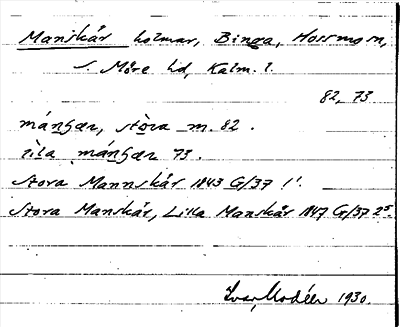 Manskär holmar, Binga, Hossmo sn,
S. Möre hd, Kalm. l.
82, 73
mánʃær, stòra m. 82.
lìla mánʃær 73.
Stora Mannskär 1843 G/37 1'.
Stora Manskär, Lilla Manskär 1847 G/37 25.
Ivar Modéer 1930.